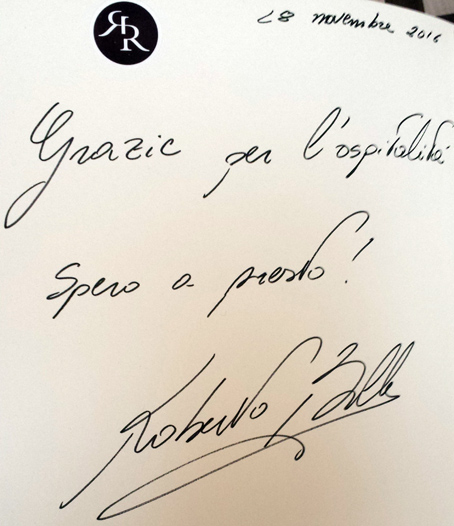 RR
28 novembre 2016
Grazie per l'ospitalità
Spero a presto!
Roberto Bolle